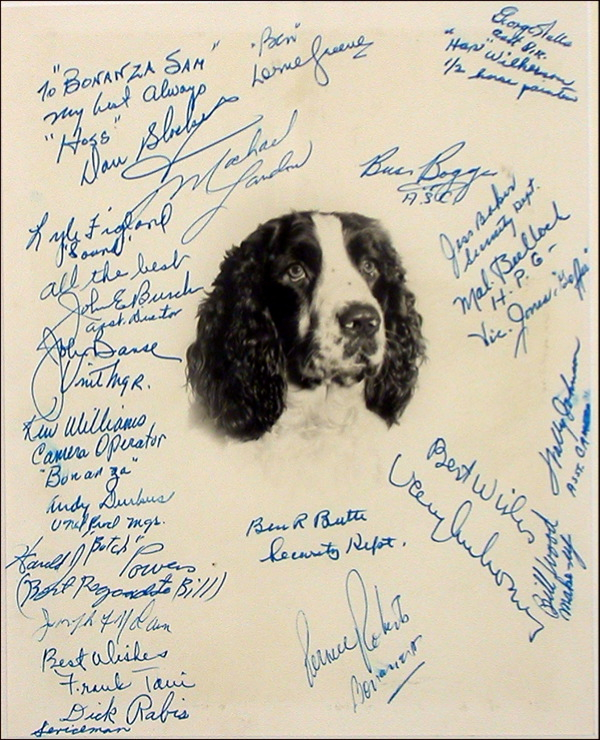 To "BONANZA SAM"
My best always
"Hoss"
Dan Blocker
"Ben"
Lorne Greene
Michael
Landon
"Hap" Wilkerson
1/2 horse painter
Buss Boggs
A.S.C.
Jess Baker
Security Dept.
Mal Bulloch
H. P. G -
Vic. Jones,
Lyle Figland
"Sound"
all the best
John E Burch
asst. Director
John Banse
Unit Mgr.
Ken Williams
Camera Operator
"Bonanza"
Andy Durkus
Unit Prod Mgr.
Harold "Butch"
Powers
(Best Regards to Bill)
Joseph
Best Wishes
Frank
Dick Rabis
Serviceman
Ben R Butte
Security Dept.
Roberts
Bonanza
Best Wishes
Johnson
Asst. Camera
Bill Wood
Make-up